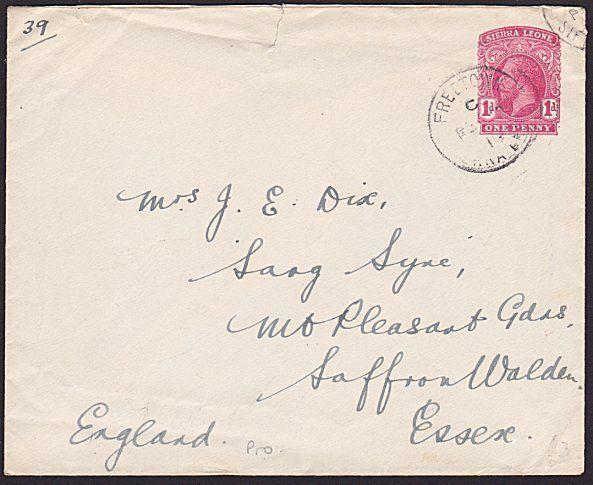 39
SIERRA LEONE
1d 1d
ONE PENNY
FREETOWN
C
Mrs J. E. Dix,
Sang Syne,
Mt Pleasant Gdns,
Saffron Walden,
Essex.
England.
Pro